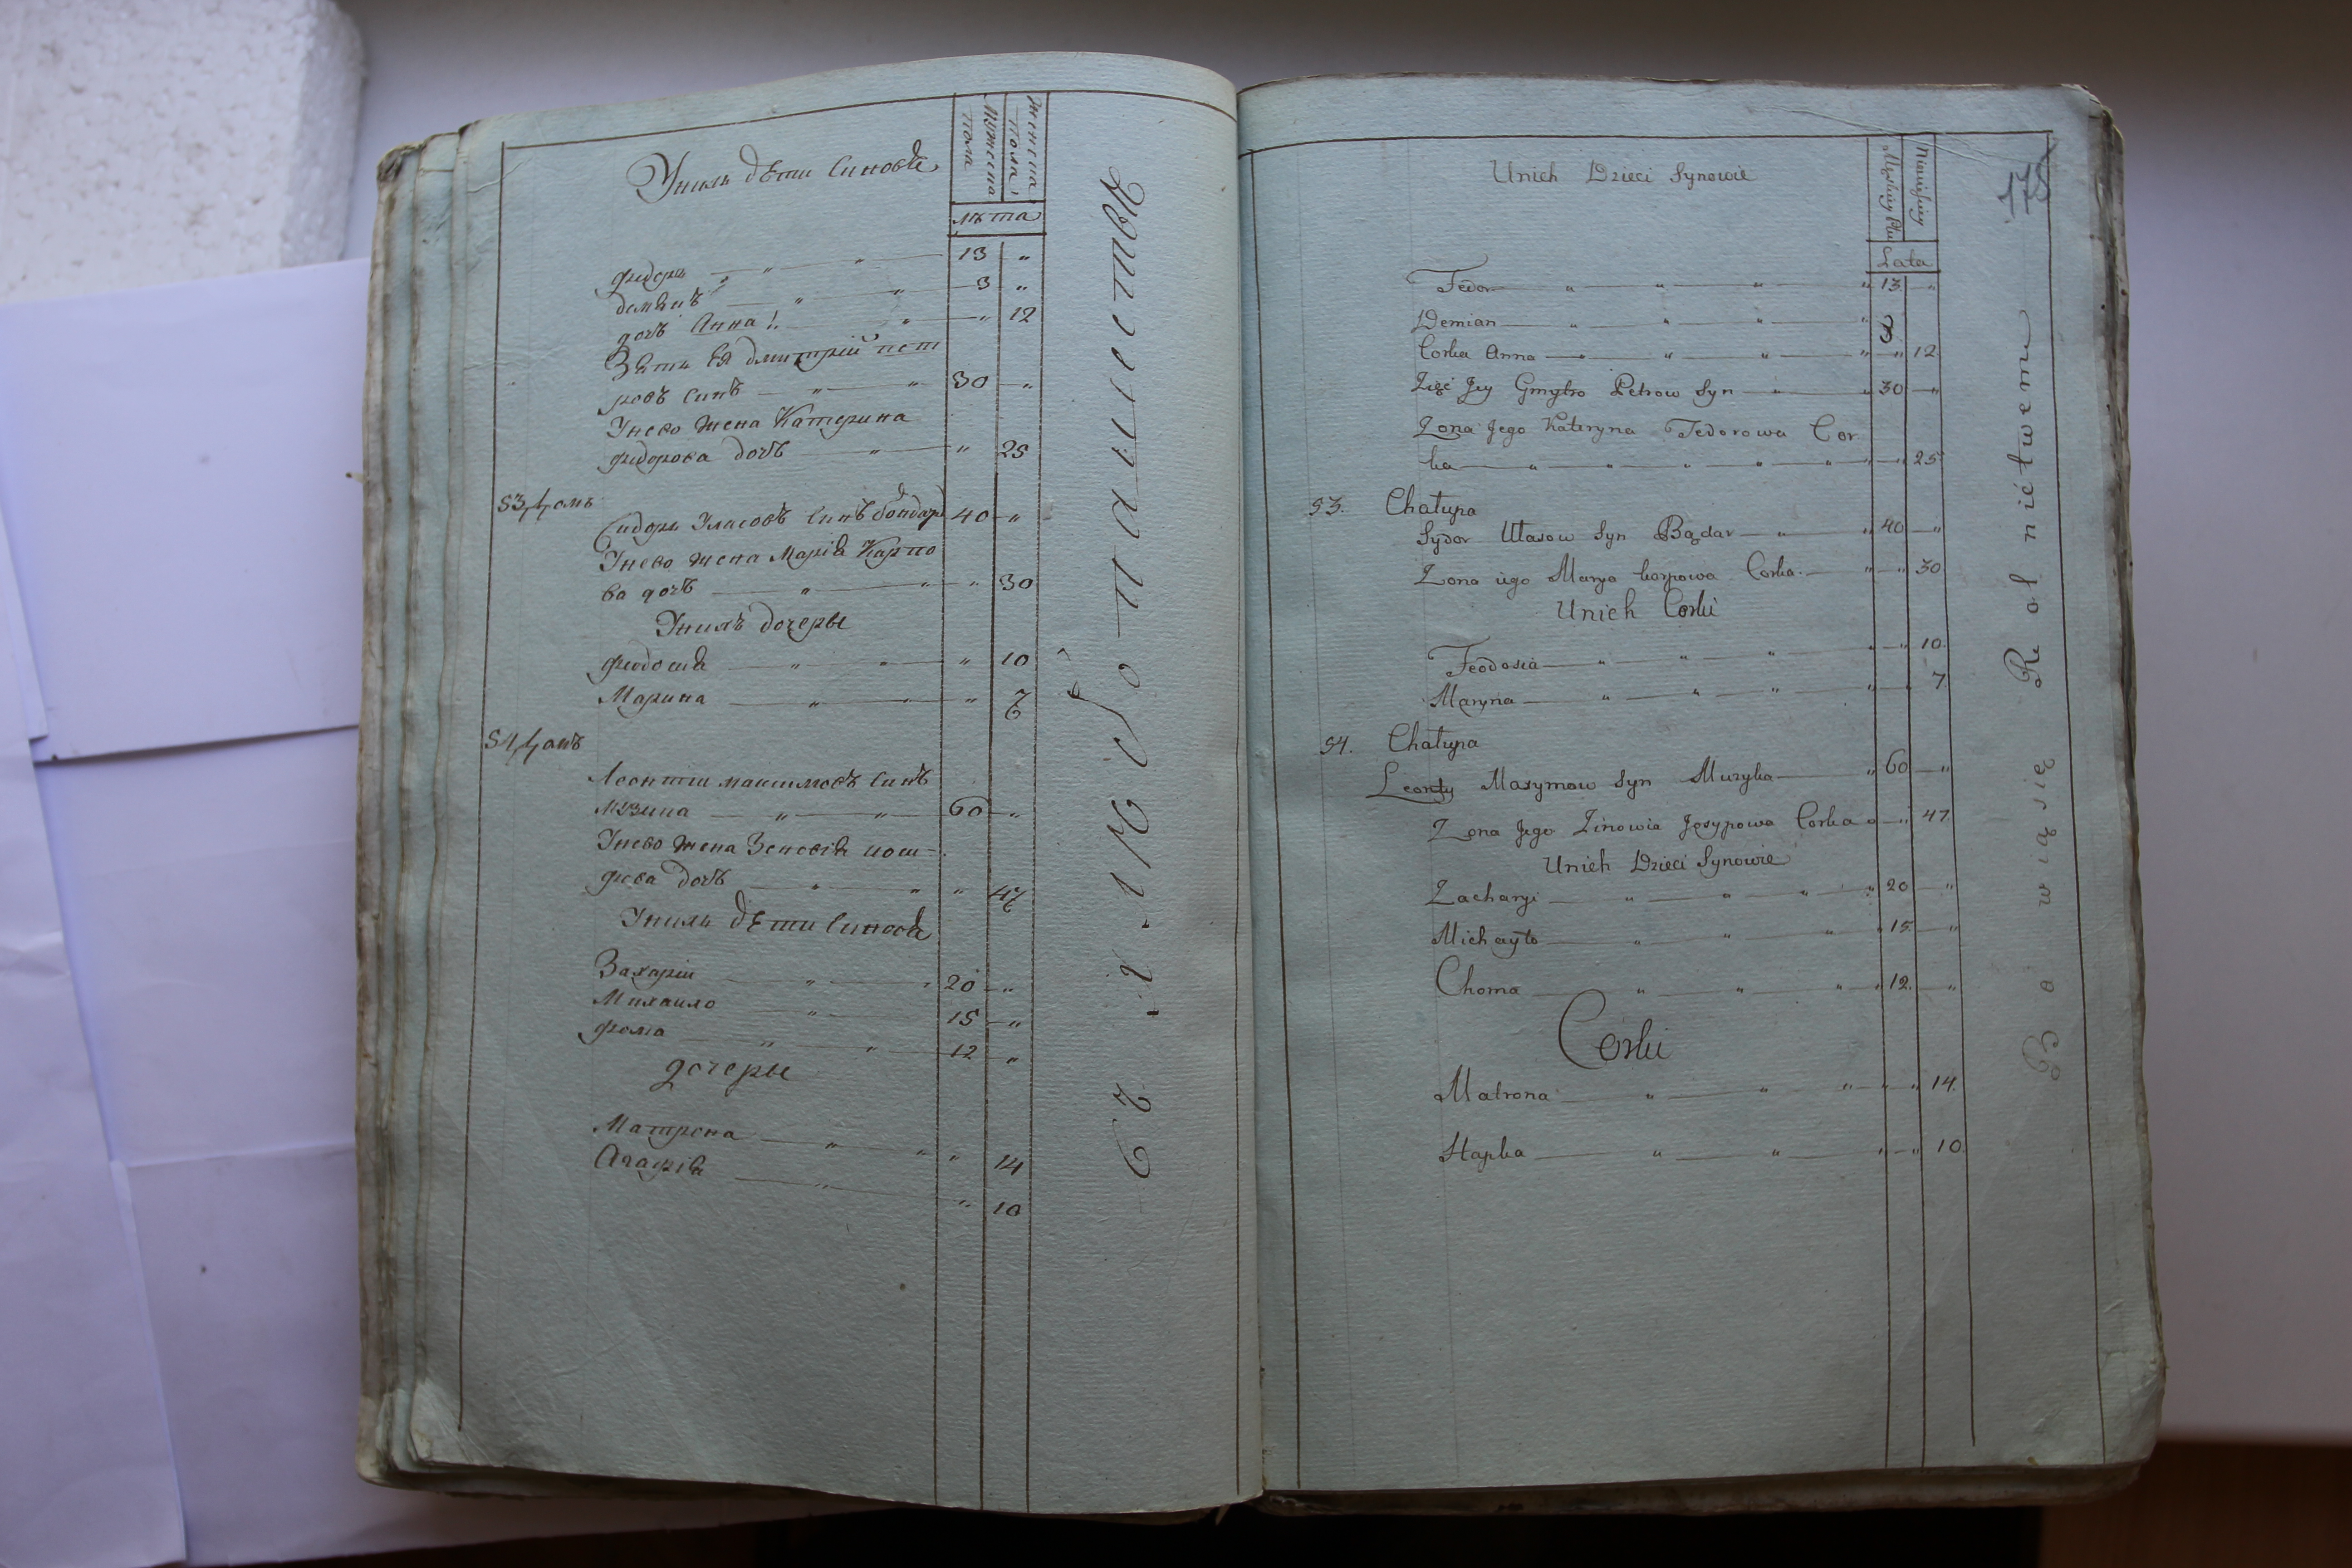 Унихъ дѣти Синовѣ
мужеска пола
женска пола
лѣта
федоръ — " — " — 13 "
демянъ — " — " — 3 "
дочъ Анна — " — " 12
Зять Ея дмитрій пет
ровъ Синъ — " — " 30 — "
Унево жена Катерина
федорова дочъ — " — " 25
53, домъ
Сидоръ Уласовъ Синъ бондарь 40 — "
Унево жена Марія Карпо
ва дочъ — " — " " 30
Унихъ дочеры
феодосия — " — " — " 10
Марина — " — " — " 7
54, домъ
Леонтий максимовъ Синъ
Музика — " — " — 60 — "
Унево жена Зеновія иоси-
фова дочъ — " — " " 47
Унихъ дѣти Синовѣ
Захарій — " — " 20 — "
Михаило — " — 15 — "
фома — " — " — 12 "
дочеры
Матрона — " — " " 14
Агафія — " — " 10
178
Unich Dzieci Synowie
Męzkiey Płci
Niewieskiey
Lata
Fedor — " — " — " — " 13 — "
Demian — " — " — " — " 3
Corka Anna — " — " — " — " — " 12
Zięć Jey Gmytro Petrow Syn — " — " 30 — "
Zona Jego Kateryna Fedorowa Cor
ka — " — " — " — " — " — " 25
53. Chałupa
Sydor Ułasow Syn Bądar — " — " 40 — "
Zona iego Marya karpowa Corka — " — " 30
Unich Corki
Feodosia — " — " — " — " — " 10
Maryna — " — " — " — " — " 7
54. Chałupa
Leonty Maxymow Syn Muzyka — " 60 — "
Zona Jego Zinowia Josypowa Corka " — " 47
Unich Dzieci Synowie
Zacharyi — " — " — " — " 20 — "
Michayło — " — " — " — " 15 — "
Choma — " — " — " — " 12 — "
Corki
Matrona — " — " — " — " — " 14
Hapka — " — " — " — " 10
Bawią się Rolnictwem